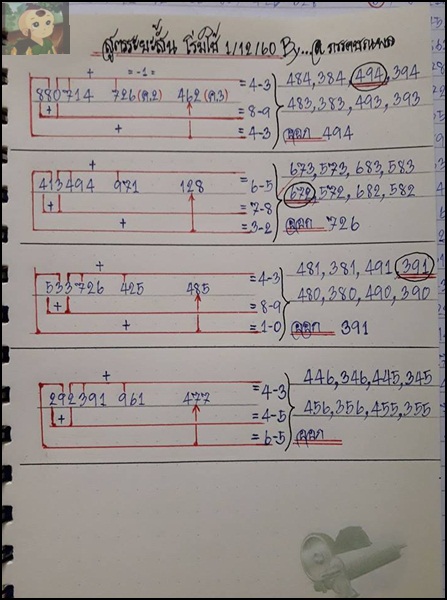 สูตรระยะสั้น เริ่มใช้ 1/12/60 By...
+ = -1 =
= 4-3
880714 726 (ค.2) 462 (ค.3)
+
= 8-9
+ = 4-3
484, 384, 494, 394
483, 383, 493, 393
ออก 494
+
= 6-5
413494 971 128
+
= 7-8
+ = 3-2
673, 573, 683, 583
672, 572, 682, 582
ออก 726
+
= 4-3
533726 425 485
+
= 8-9
+ = 1-0
481, 381, 491, 391
480, 380, 490, 390
ออก 391
+
= 4-3
292391 961 477
+
= 4-5
= 6-5
446, 346, 445, 345
456, 356, 455, 355
ออก